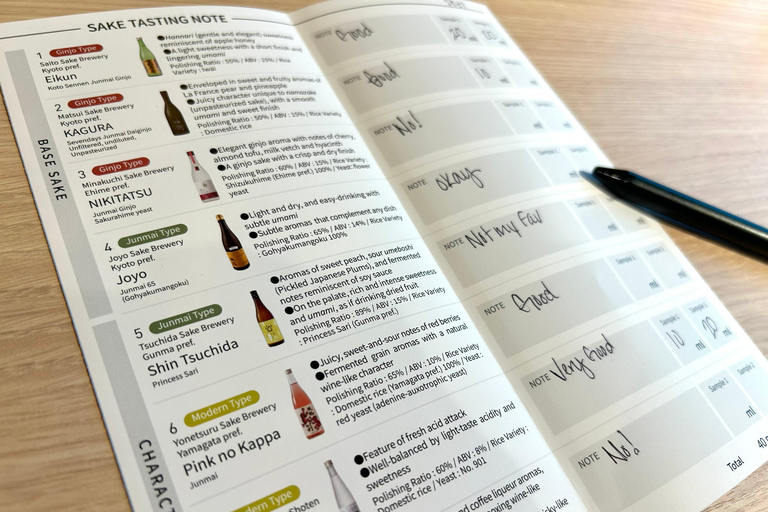 SAKE TASTING NOTE
1
Ginjo Type
Saito Sake Brewery
Kyoto pref.
Eikun
Koto Sennen Junmai Ginjo
●Hannari (gentle and elegant) sweetness
reminiscent of apple honey
●A light sweetness with a short finish and
lingering umami
Polishing Ratio : 55% / ABV : 25% / Rice
Variety : Iwai
2
Ginjo Type
Matsui Sake Brewery
Kyoto pref.
KAGURA
Sevendays Junmai Daiginjo
Unfiltered, undiluted,
Unpasteurized
●Enveloped in sweet and fruity aromas of
La France pear and pineapple
●Juicy character unique to
(unpasteurized sake), with a smooth
umami and sweet finish
Polishing Ratio : 50% / ABV : 15% / Rice Variety
: Domestic rice
3
Ginjo Type
Minakuchi Sake Brewery
Ehime pref.
NIKITATSU
Junmai Ginjo
Sakurahime yeast
●Elegant ginjo aroma with notes of cherry,
almond tofu, milk vetch and hyacinth
●A ginjo sake with a crisp and dry finish
Polishing Ratio : 60% / ABV : 15% / Rice Variety :
Shizukuhime (Ehime pref.) 100% / Yeast: flower
yeast
BASE SAKE
4
Junmai Type
Joyo Sake Brewery
Kyoto pref.
Joyo
Junmai 65
(Gohyakumangoku)
●Light and dry, and easy-drinking with
subtle umami
●Subtle aromas that complement any dish
Polishing Ratio : 65% / ABV : 14% / Rice Variety
: Gohyakumangoku 100%
5
Junmai Type
Tsuchida Sake Brewery
Gunma pref.
Shin Tsuchida
Princess Sari
●Aromas of sweet peach, sour umeboshi
(Pickled Japanese Plums), and fermented
notes reminiscent of soy sauce
●On the palate, rich and intense sweetness
and umami, as if drinking dried fruit
Polishing Ratio : 89% / ABV : 15% / Rice Variety
: Princess Sari (Gunma pref.)
6
Modern Type
Yonetsuru Sake Brewery
Yamagata pref.
Pink no Kappa
Junmai
●Juicy, sweet-and-sour notes of red berries
●Fermented grain aromas with a natural
wine-like character
Polishing Ratio : 65% / ABV : 10% / Rice Variety
: Domestic rice (Yamagata pref.) 100% / Yeast :
red yeast (adenine-auxotrophic yeast)
CHARACT
dern Type
Shoten
●Feature of fresh acid attack
●Well-balanced by light-taste acidity and
sweetness
Polishing Ratio : 60% / ABV : 8% / Rice Variety :
Domestic rice / Yeast : No. 901
and coffee liqueur aromas,
wine-like
Good
20
NOTE Good
10
NOTE No!
NOTE okay
NOTE Not my Fav
ml
NOTE Good
ml
ml
NOTE Very Good
Sample 1
10 ml
Sample 2
ml
NOTE No!
Sample 2
ml
Total